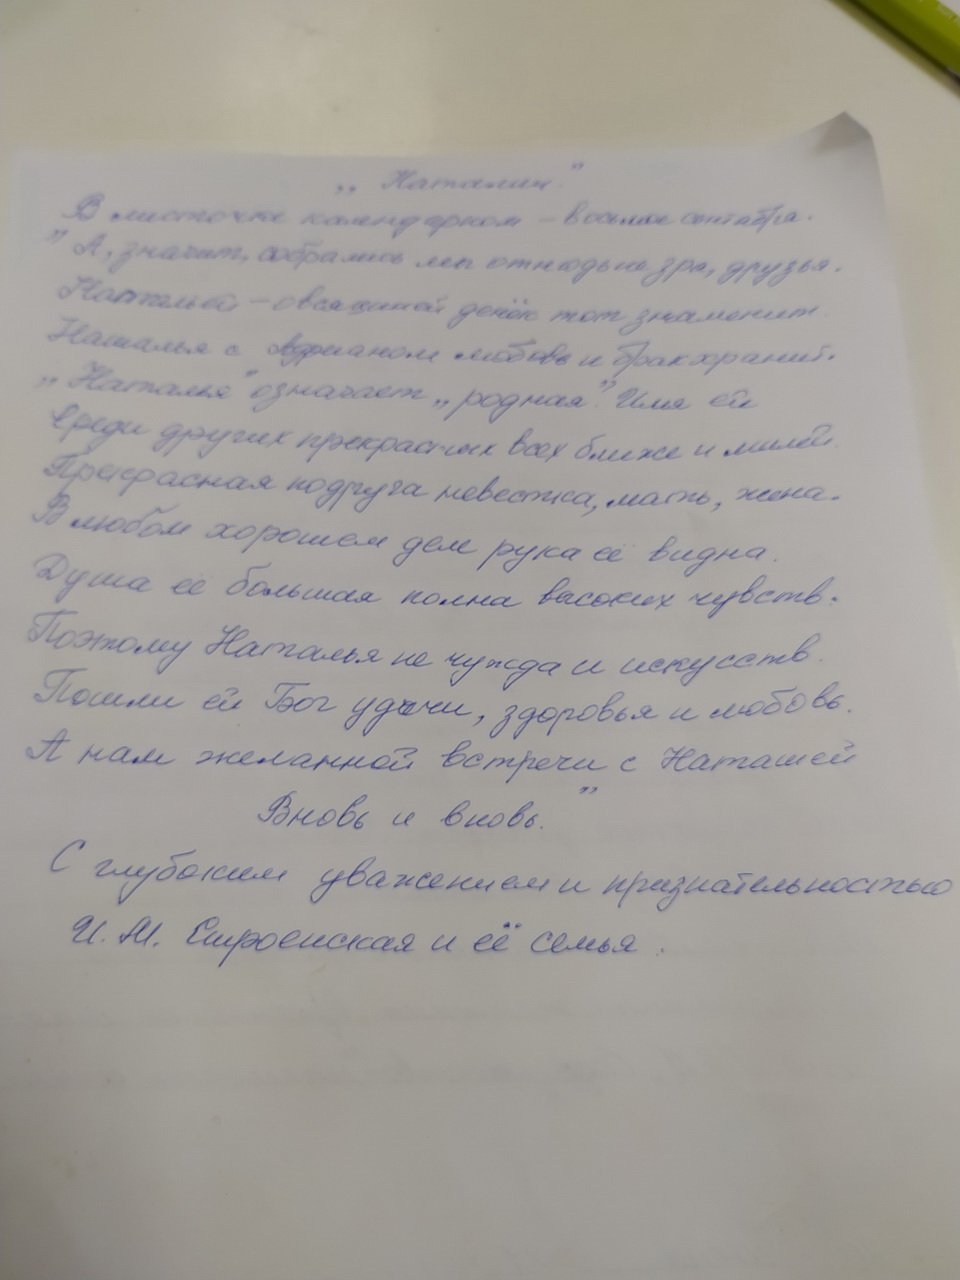 „Наталии"
В листочке календарном – восьмое сентября.
"А, значит, собрались мы отнюдь не зря, друзья.
Натальей – овсяницей денёк тот знаменит
Наталья с Адрианом любовь и брак хранит.
„Наталья" означает „родная". Имя ей
Среди других прекрасных всех ближе и милей.
Прекрасная подруга невестка, мать, жена.
В любом хорошем деле рука её видна.
Душа её большая полна высоких чувств.
Поэтому Наталья не чужда и искусств.
Пошли ей Бог удачи, здоровья и любовь.
А нам желанной встречи с Наташей
Вновь и вновь."
С глубоким уважением и признательностью
И. М. и её семья.